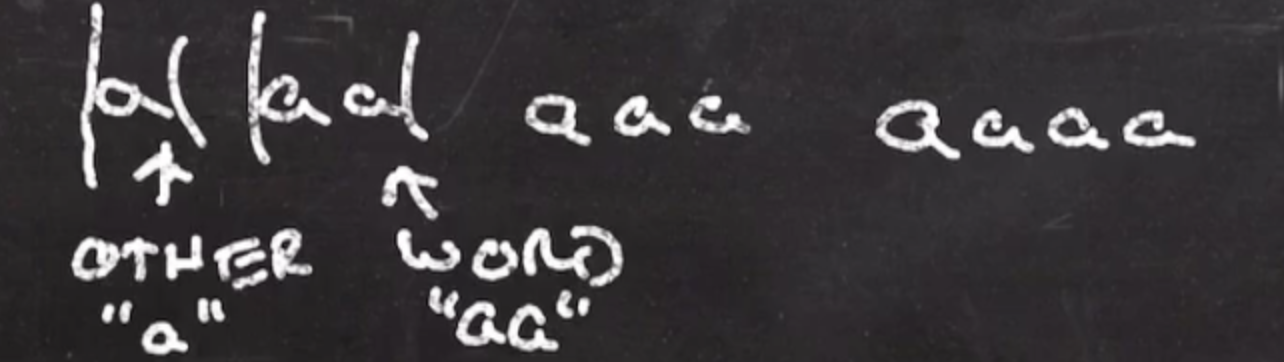 |a| |aa| aaa aaaa
↑ ↑
OTHER WORD
"a" "aa"